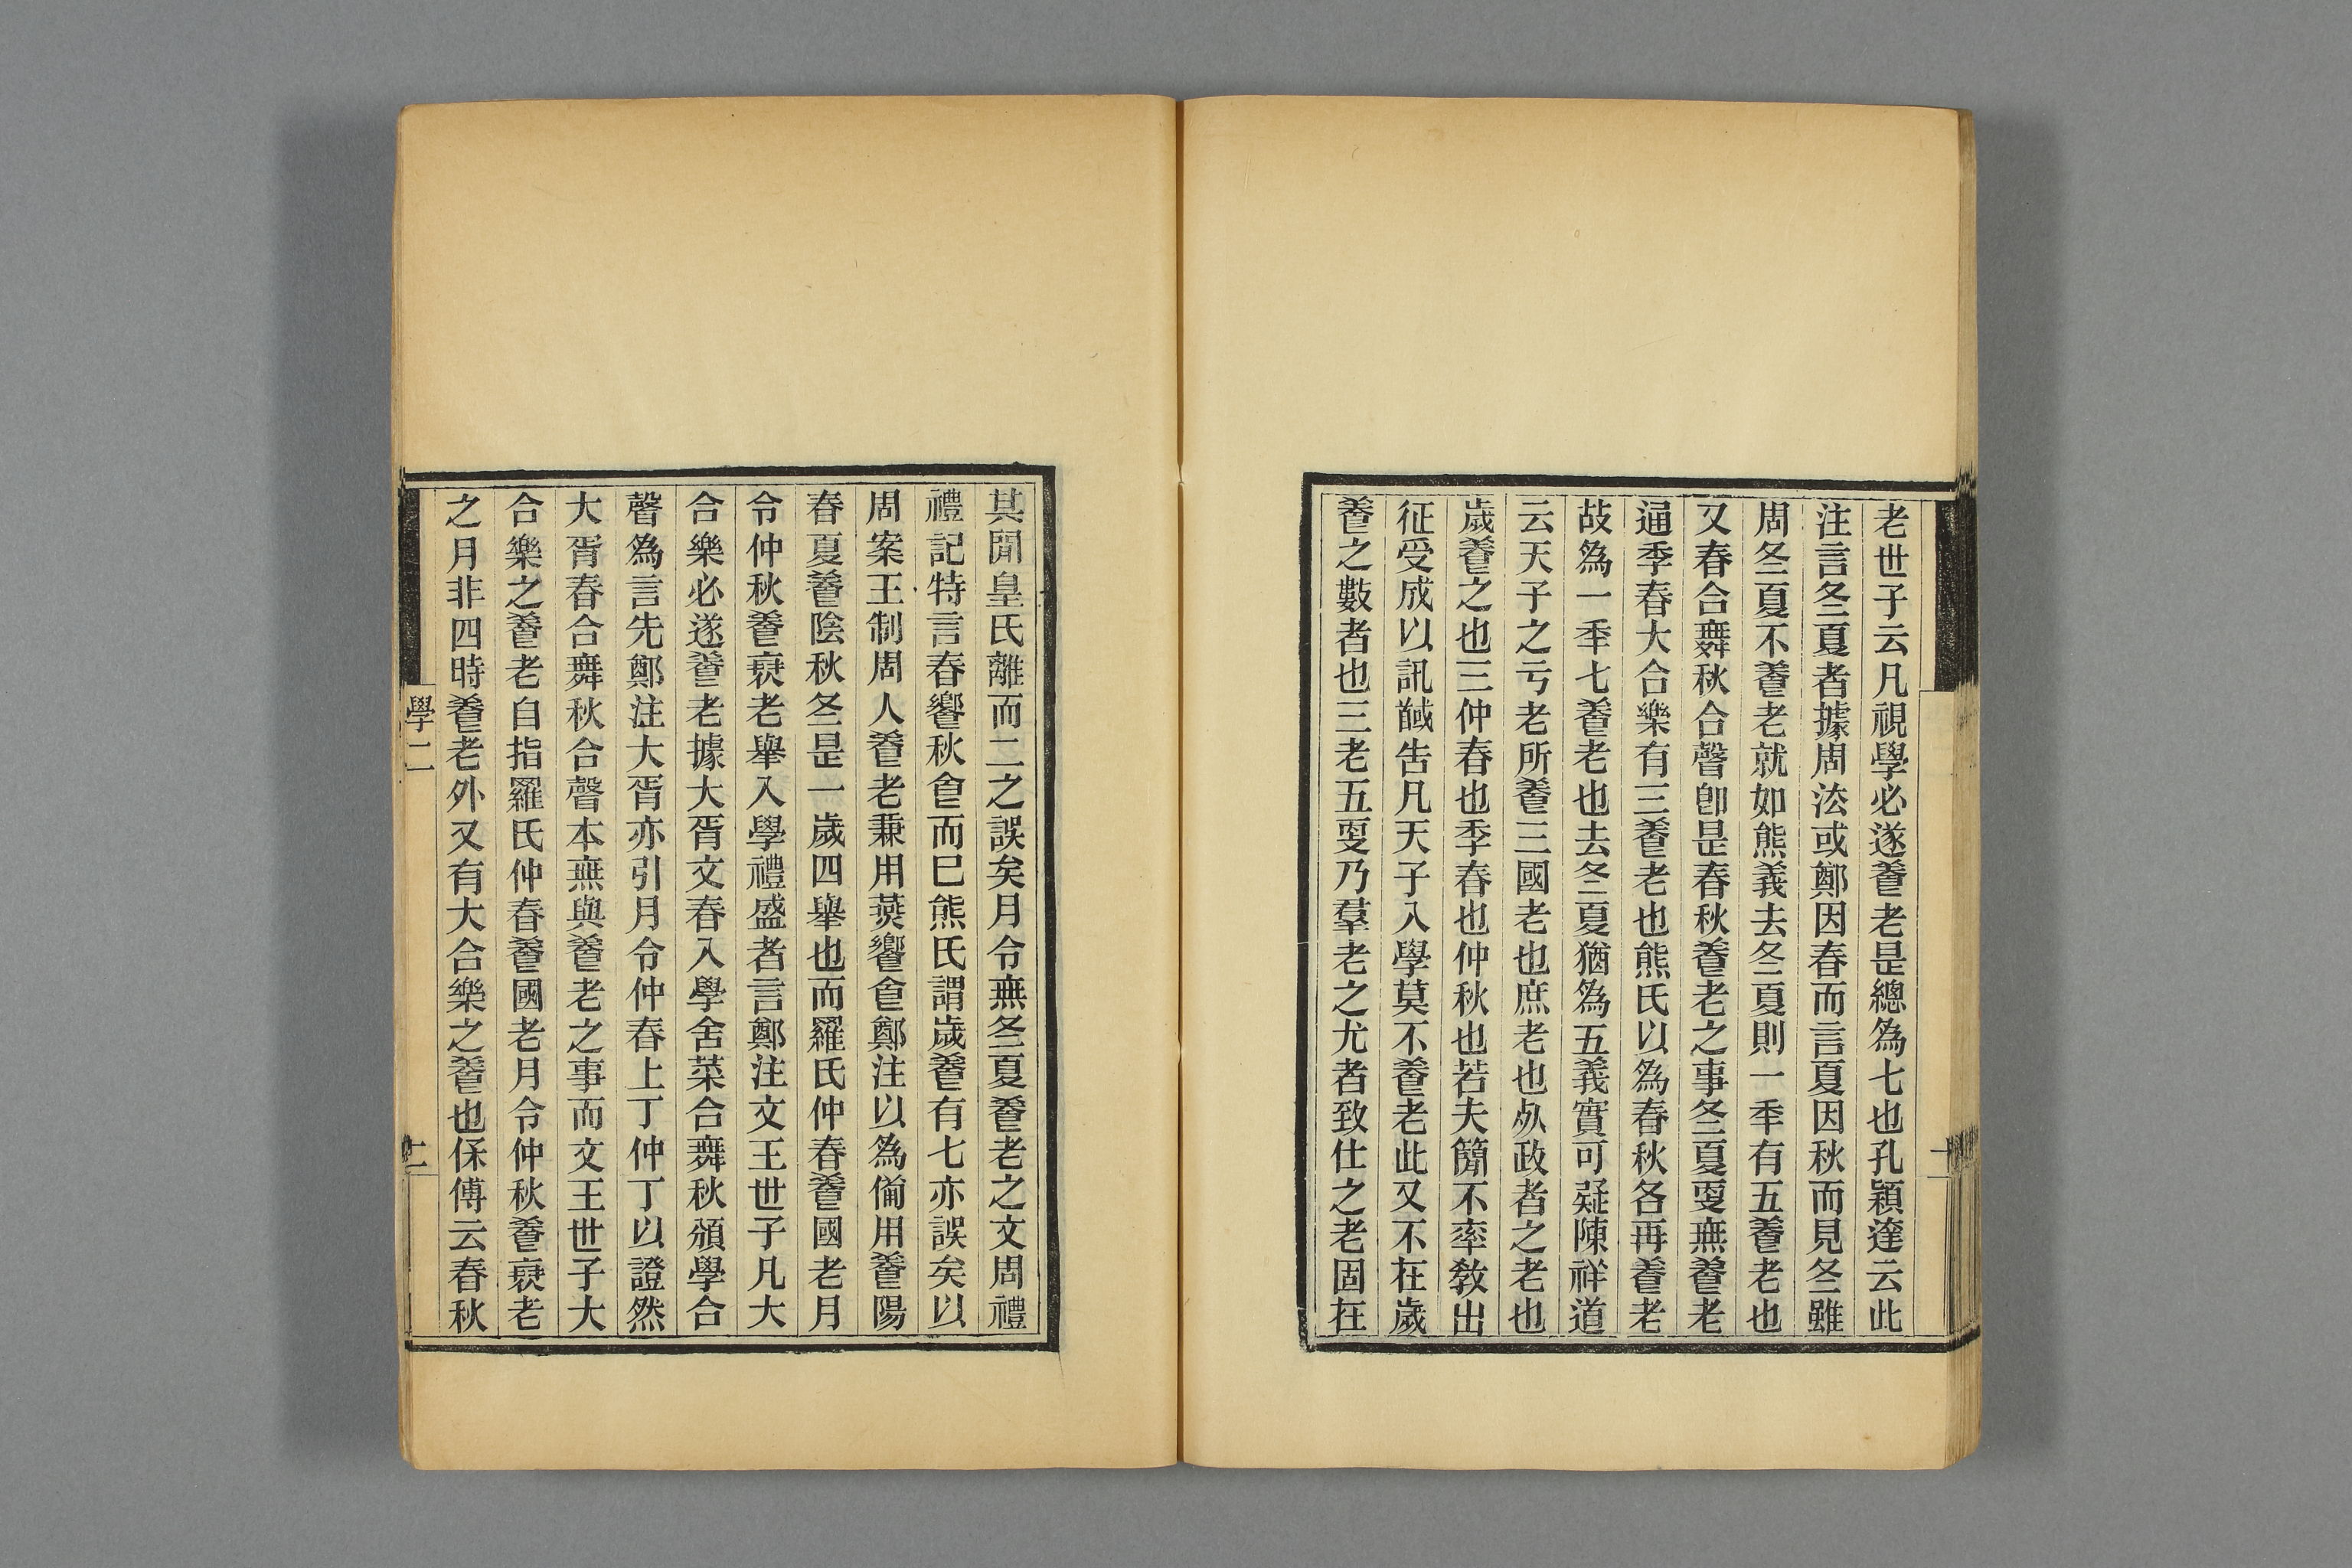 老世子云凡視學必遂養老是總為七也孔穎達云此
注言冬夏者據周法或鄭因春而言夏因秋而見冬雖
周冬夏不養老就如熊義去冬夏則一秊有五養老也
又春合舞秋合聲卽是春秋養老之事冬夏更無養老
通季春大合樂有三養老也熊氏以為春秋各再養老
故為一秊七養老也去冬夏猶為五義實可疑陳祥道
云天子之亏老所養三國老也庶老也死政者之老也
歲養之也三仲春也季春也仲秋也若夫簡不率敎出
征受成以訊馘告凡天子入學莫不養老此又不在歲
養之數者也三老五更乃羣老之尤者致仕之老固在
其閒皇氏離而二之誤矣月令無冬夏養老之文周禮
禮記特言春饗秋食而巳熊氏謂歲養有七亦誤矣以
周案王制周人養老兼用燕饗食鄭注以為備用養陽
春夏養陰秋冬是一歲四舉也而羅氏仲春養國老月
令仲秋養衰老舉入學禮盛者言鄭注文王世子凡大
合樂必遂養老據大胥文春入學舍菜合舞秋頒學合
聲為言先鄭注大胥亦引月令仲春上丁仲丁以證然
大胥春合舞秋合聲本無與養老之事而文王世子大
合樂之養老自指羅氏仲春養國老月令仲秋養衰老
之月非四時養老外又有大合樂之養也保傅云春秋
學二